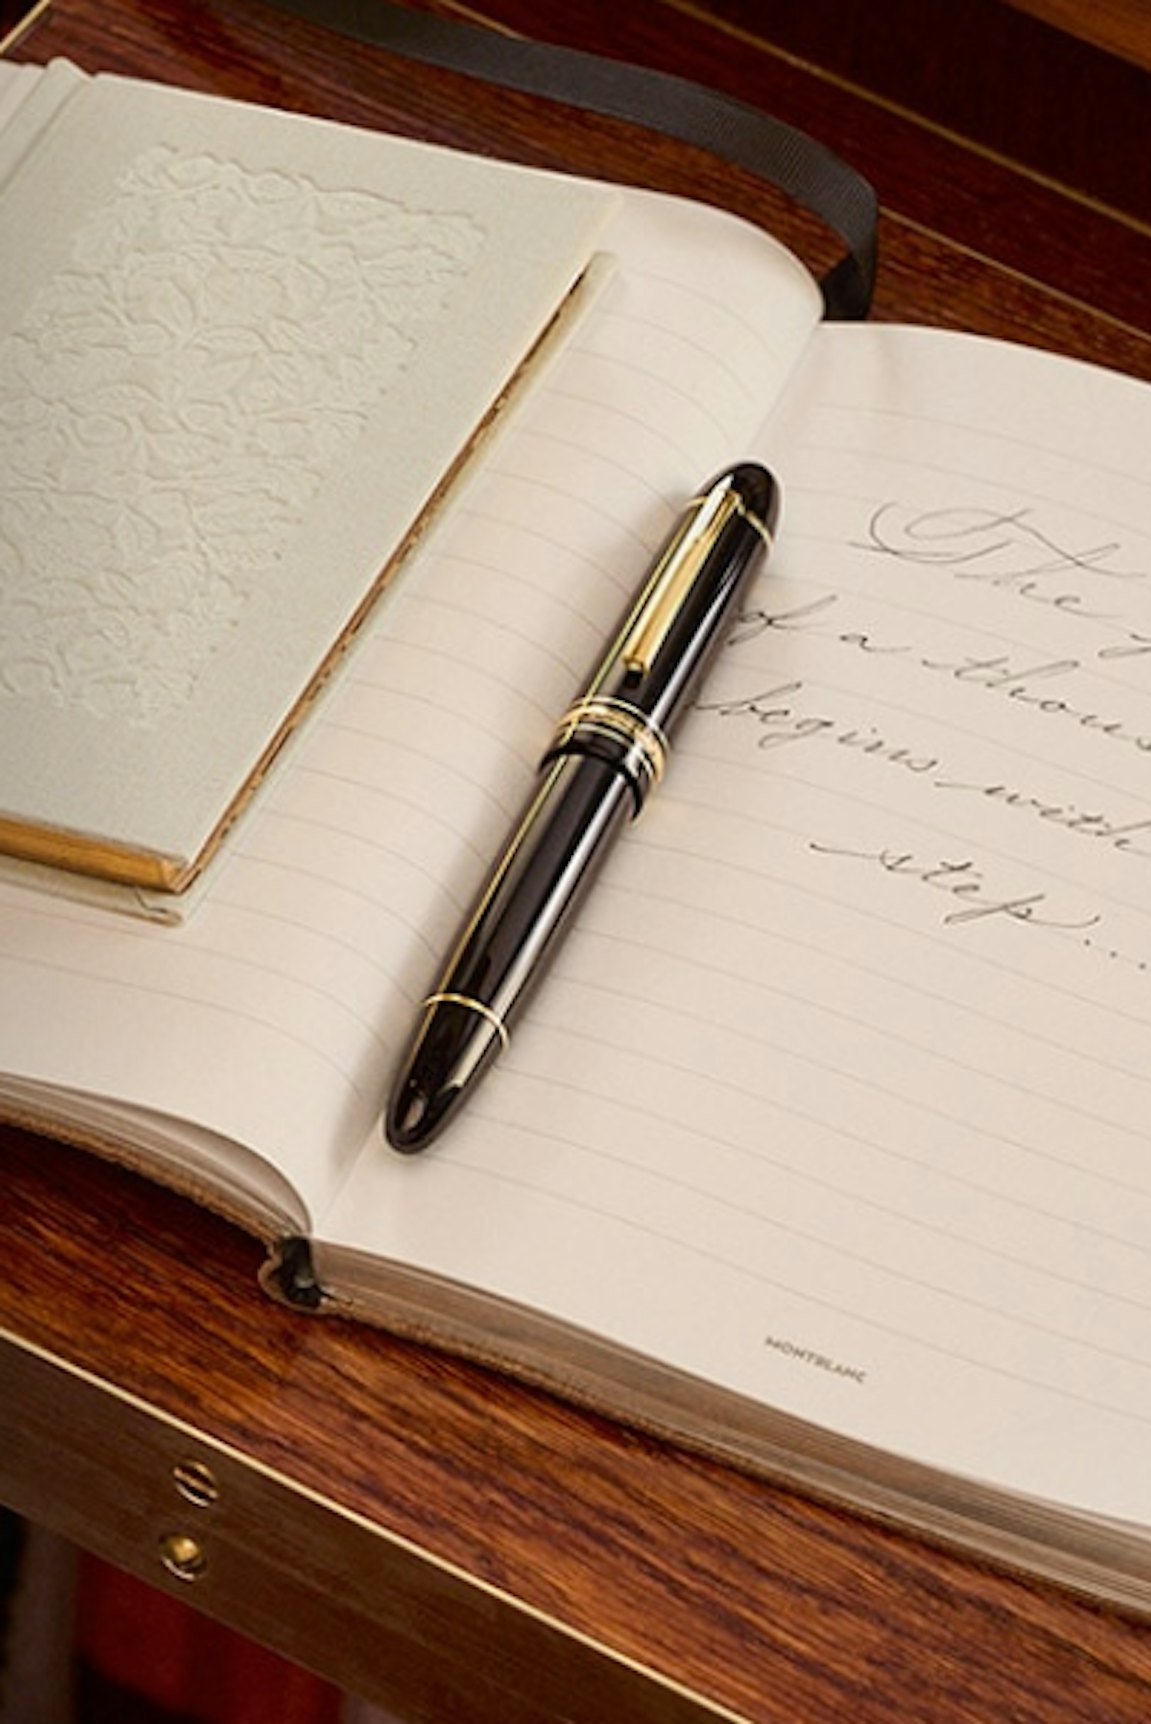 The
of a thous
begins with
step...
MONTBLANC